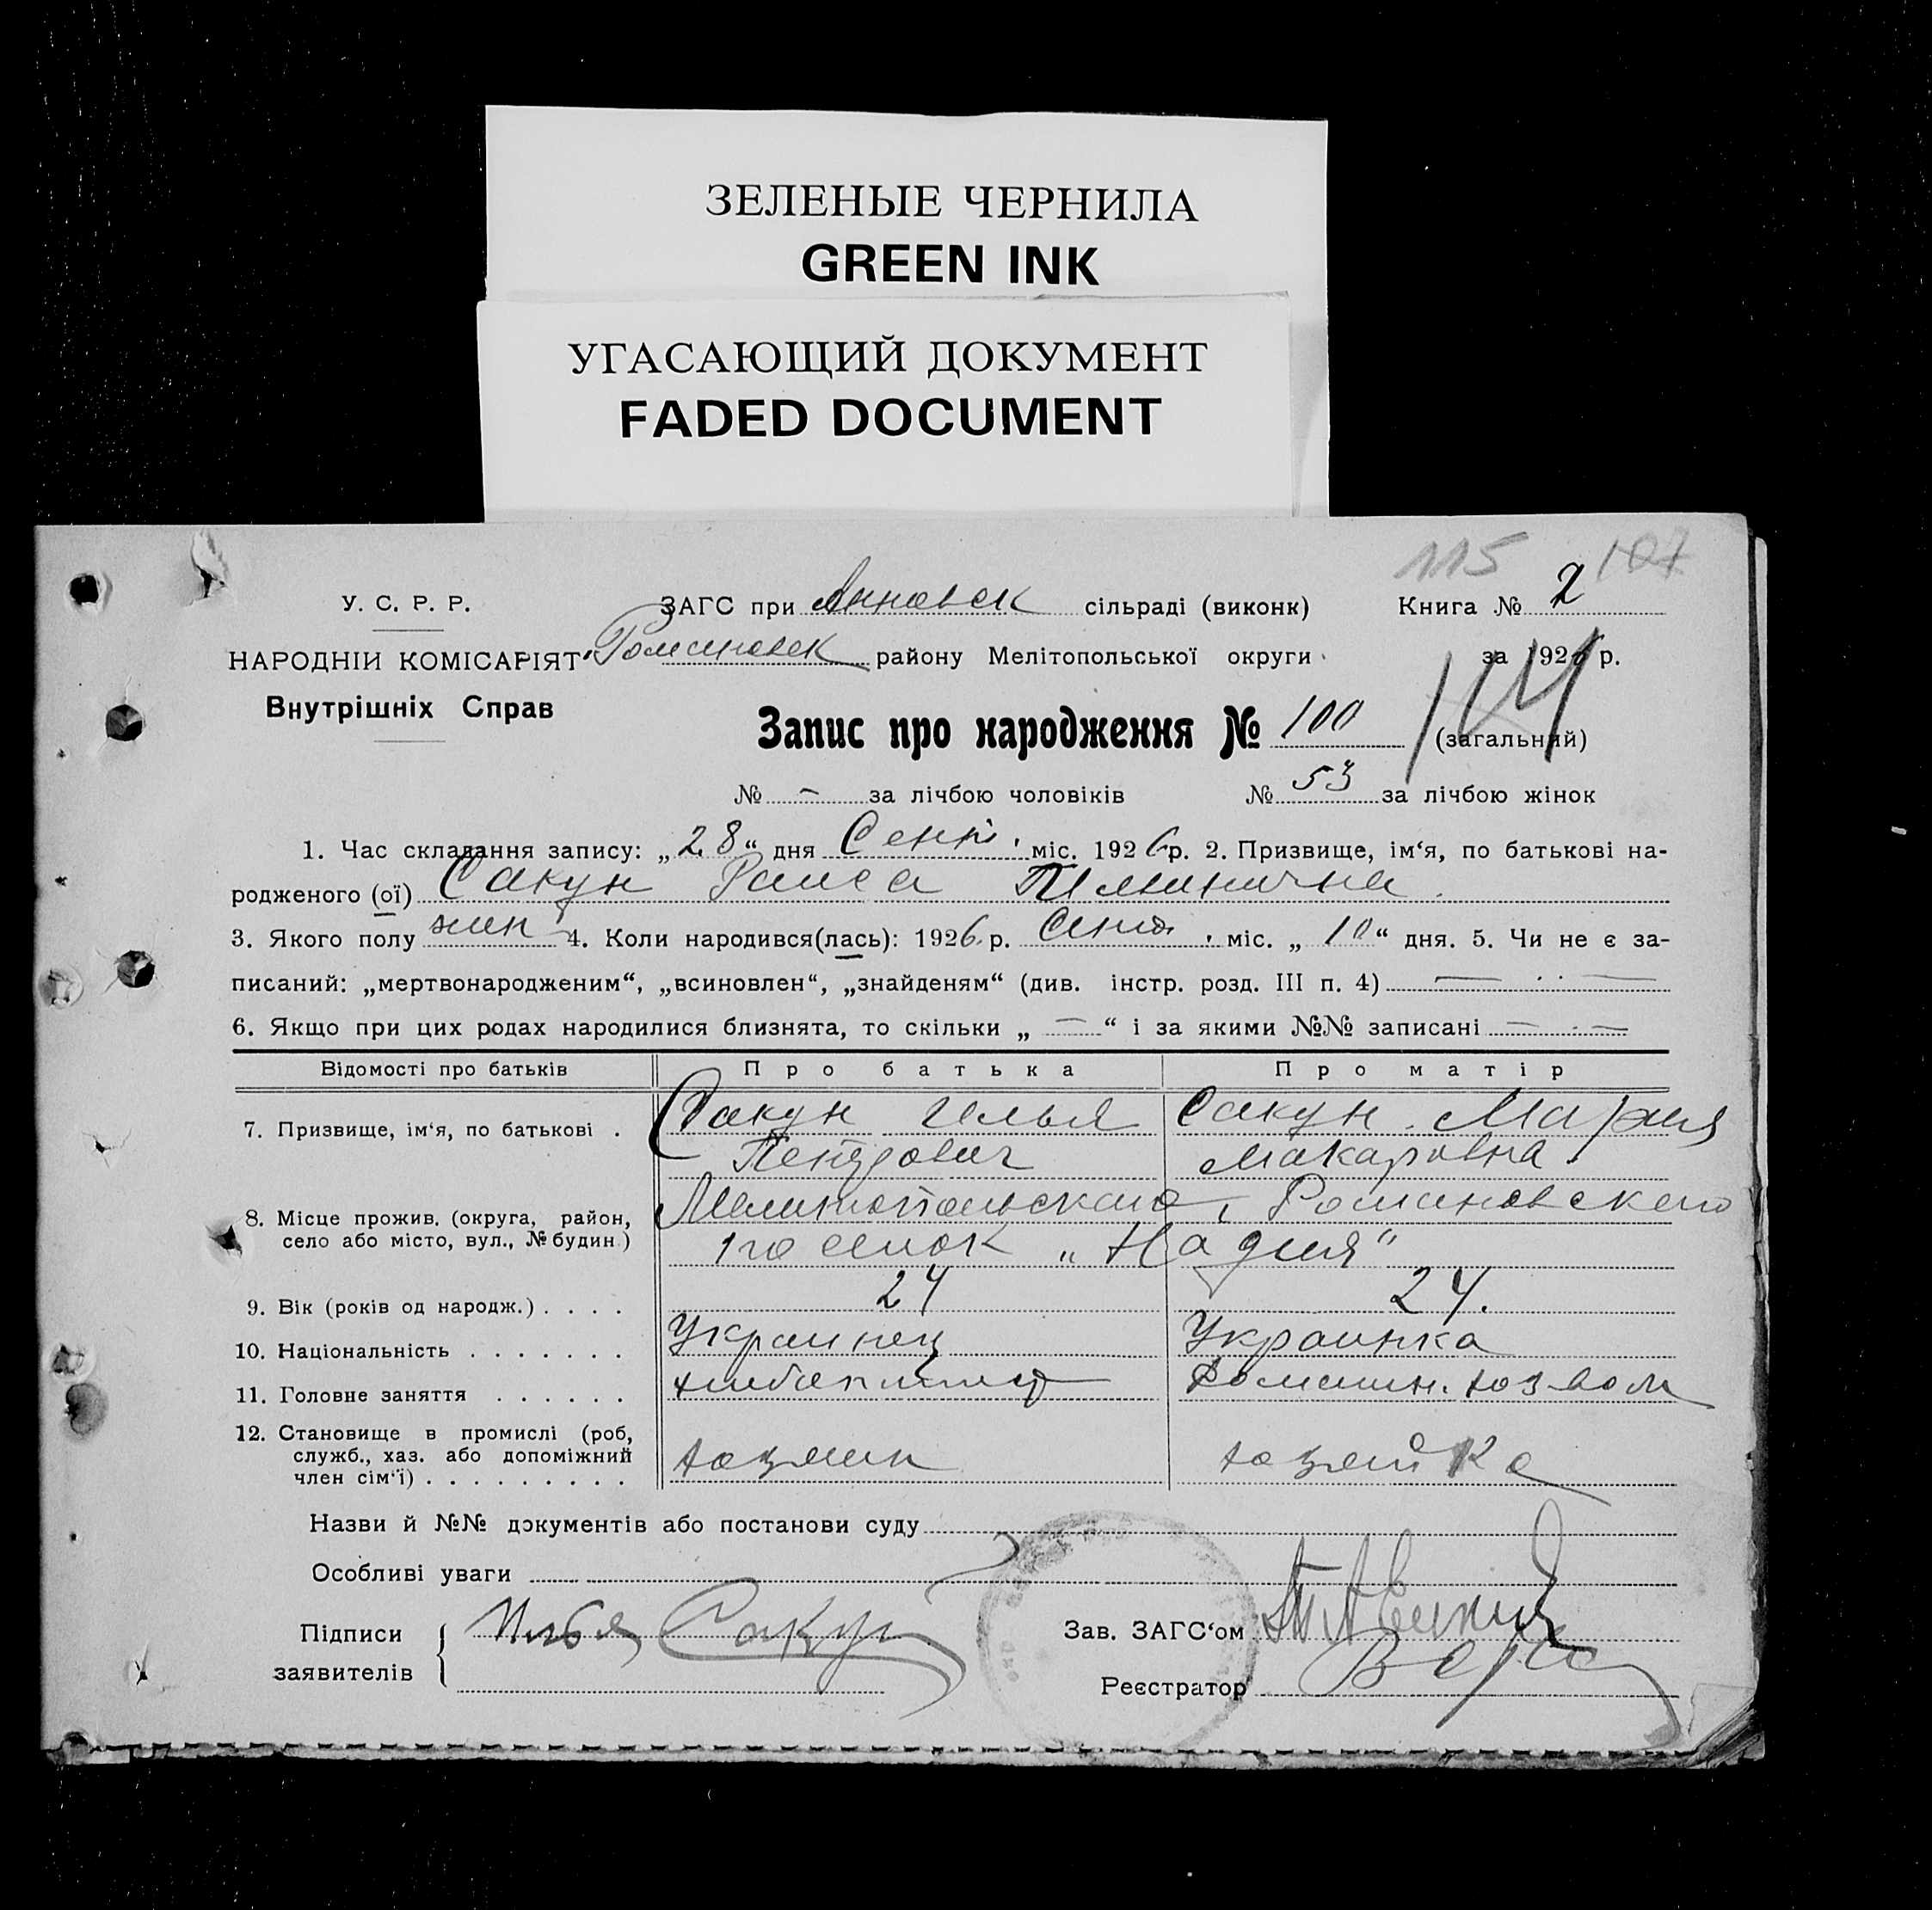 ЗЕЛЕНЫЕ ЧЕРНИЛА
GREEN INK
УГАСАЮЩИЙ ДОКУМЕНТ
FADED DOCUMENT
115 107
У. С. Р. Р.
ЗАГС при Анновск сільраді (виконк)
Книга № 2
НАРОДНІЙ КОМІСАРІЯТ
Романовск району Мелітопольської округи
за 1926 р.
Внутрішніх Справ
Запис про народження № 100 (загальний)
114
№ – за лічбою чоловіків № 53 за лічбою жінок
1. Час складання запису: „28“ дня Сент. міс. 1926 р. 2. Призвище, ім‘я, по батькові на-
родженого (ої) Сакун Раиса Ильинична.
3. Якого полу жен 4. Коли народився(лась): 1926 р. Сент. міс. „10“ дня. 5. Чи не є за-
писаний: „мертвонародженим“, „всиновлен“, „знайденям“ (див. інстр. розд. III п. 4) —
6. Якщо при цих родах народилися близнята, то скільки „ – “ і за якими №№ записані –
Відомості про батьків
Про батька
Про матір
7. Призвище, ім‘я, по батькові .
Сакун Илья
Петрович
Сакун Мария
Макаровна.
8. Місце прожив. (округа, район,
село або місто, вул., № будин.)
Мелитопольского, Романовского
поселок „Надия“
9. Вік (років од народж.) . . . .
24
24.
10. Національність . . . . . . .
Украинец
Украинка
11. Головне заняття . . . . . .
хлебопашец
Домашн. хоз-вом
12. Становище в промислі (роб,
служб., хаз. або допоміжний
член сім‘ї) . . . . . . . . .
хозяин
хозяйка
Назви й №№ документів або постанови суду
Особливі уваги
Підписи
заявителів
Илья Сакун
Зав. ЗАГС‘ом
Реєстратор